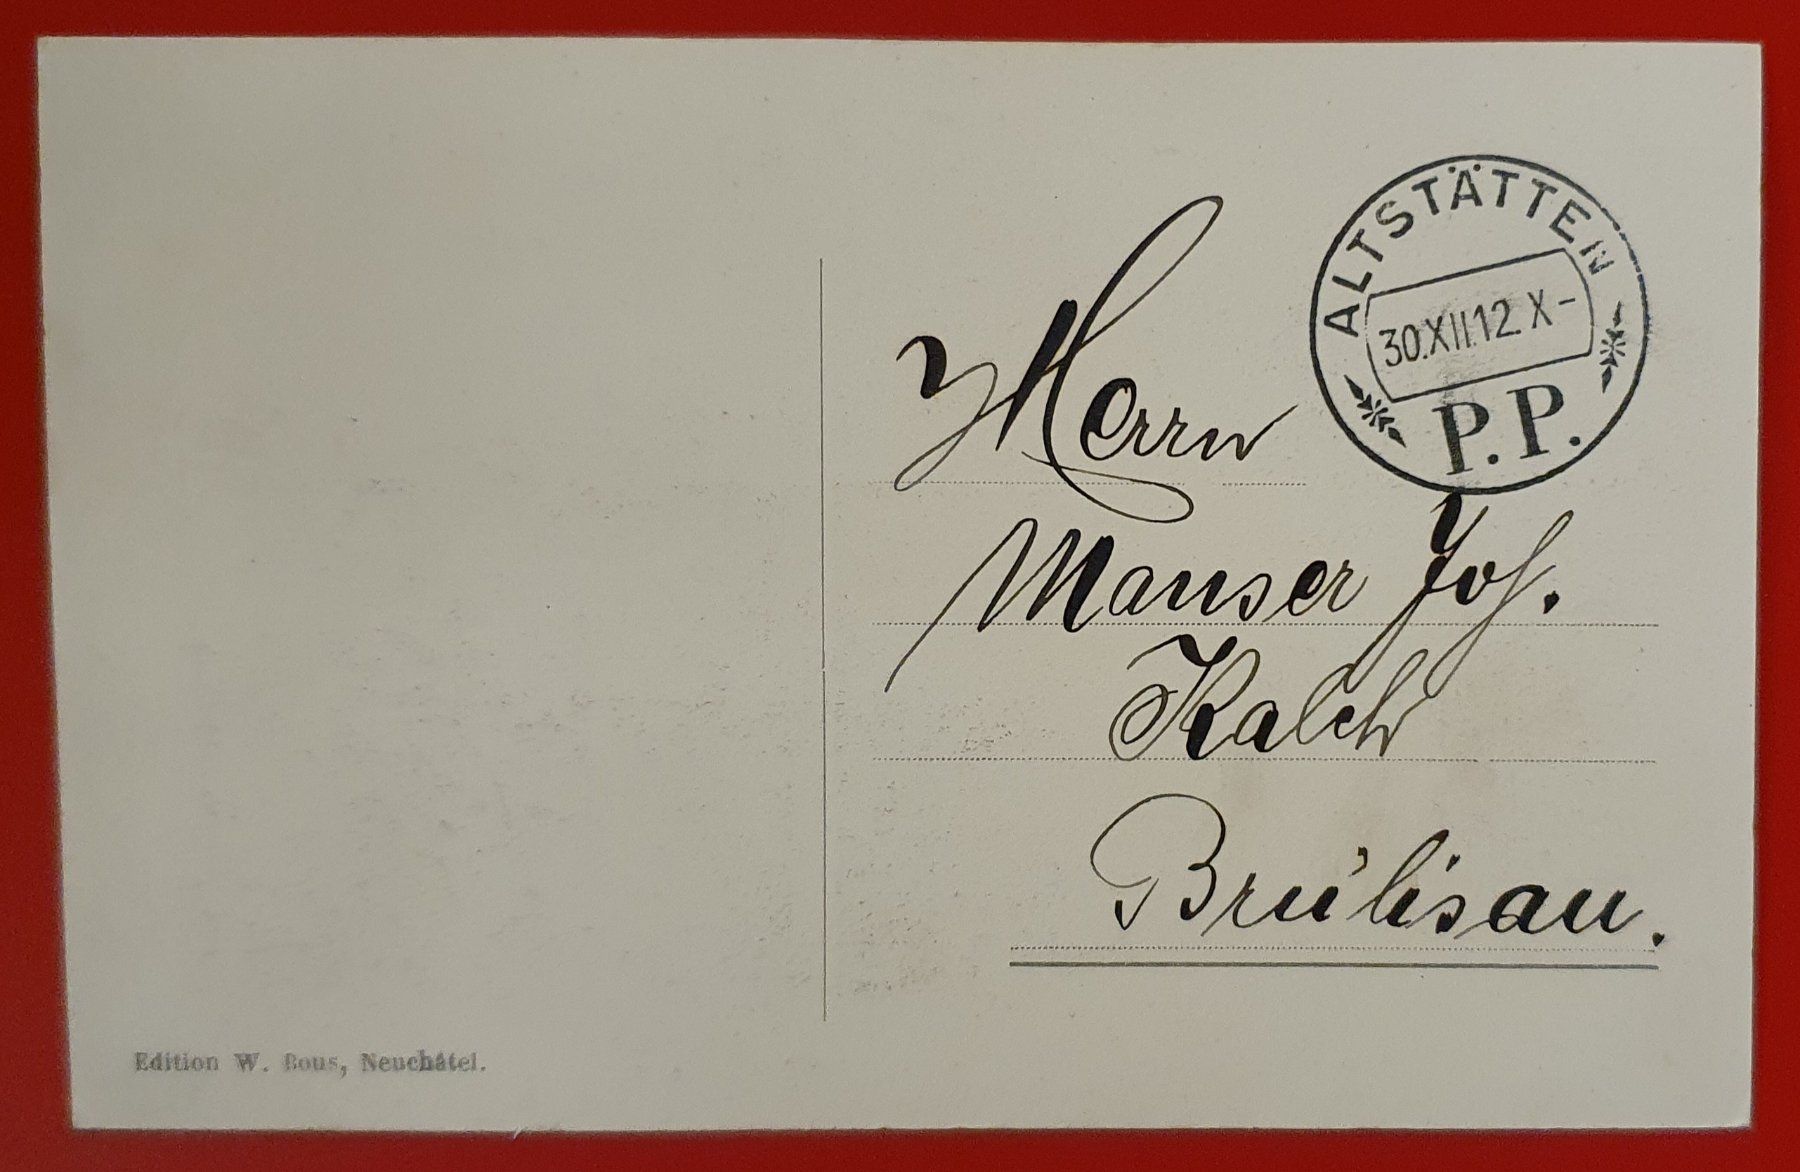 ALTSTÄTTEN
30.XII.12. X-
P.P.
Herrn
Manser Jos.
Kalch
Brülisau.
Edition W. Bous, Neuchâtel.